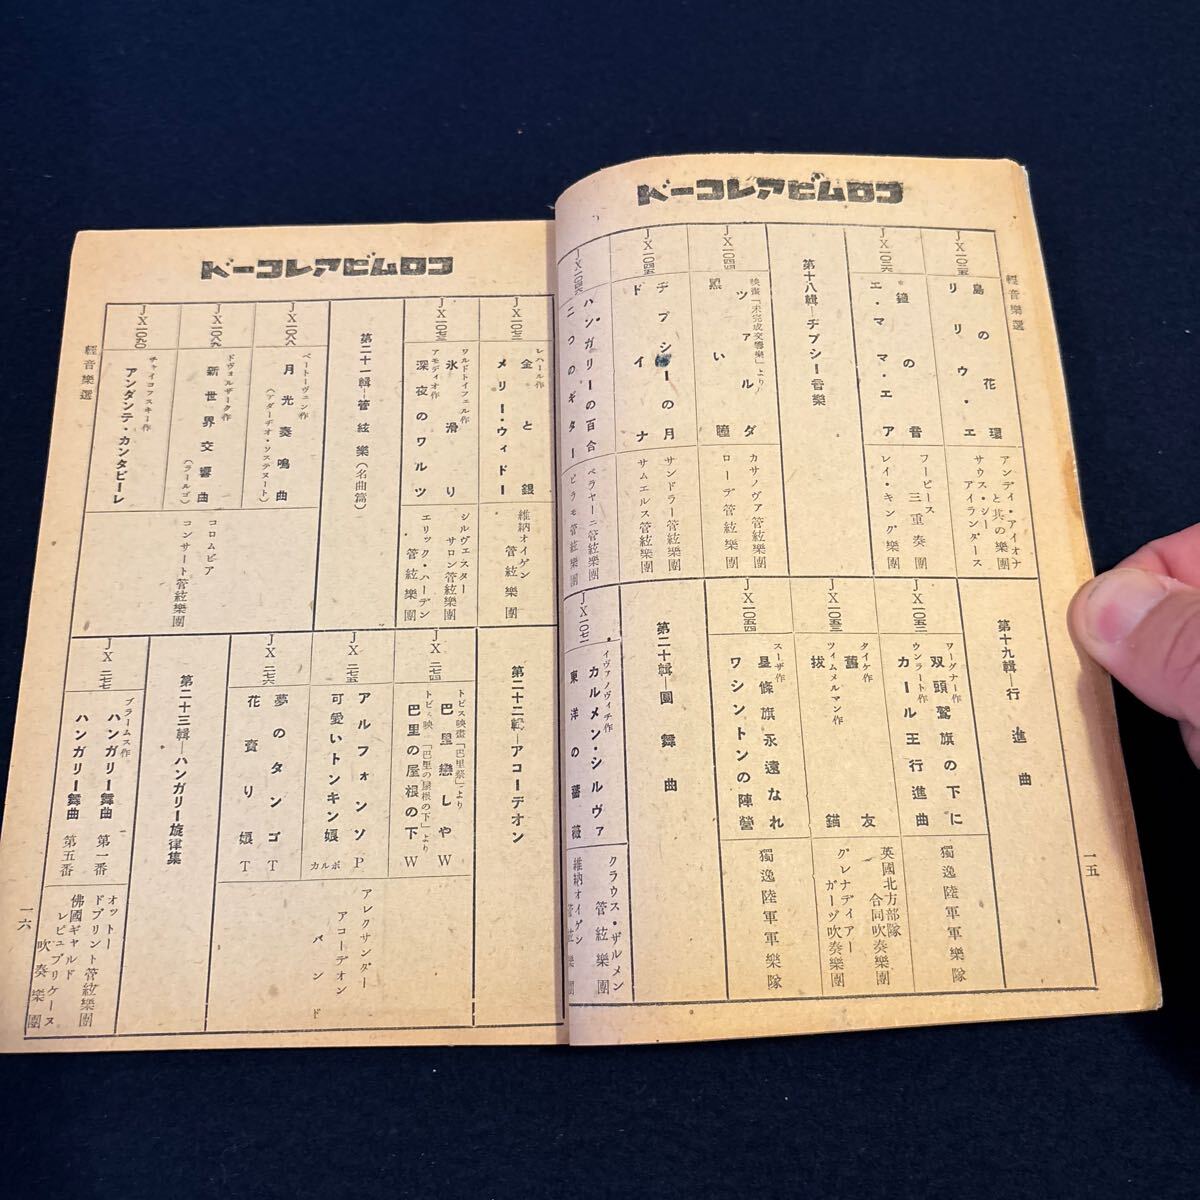 コロムビアレコード
輕音樂選
JX一〇三五
島の花環
リリウ・エ
アンディ・アイオナと其の樂團
サウス・シー・アイランダース
JX一〇三六
鐘の音
エ・マ・マ・エア
フーピース三重奏團
レイ・キング樂團
第十八輯―ヂプシー音樂
JX一〇四四
映畫「未完成交響樂」より
ツァルダ
黒い瞳
カサノヴァ管絃樂團
ローデ管絃樂團
JX一〇四五
ヂプシーの月
ドイナ
サンドラー管絃樂團
サムエルス管絃樂團
JX一〇四六
ハンガリーの百合
二つのギター
ベラヤーニ管絃樂團
ピラモ管絃樂團
第十九輯―行進曲
JX一〇五二
ワーグナー作
双頭鷲旗の下に
ウンラート作
カール王行進曲
獨逸陸軍軍樂隊
JX一〇五三
タイケ作
舊友
ツィムメルマン作
拔錨
英國北方部隊合同吹奏樂團
グレナディアーガーヅ吹奏樂團
JX一〇五四
スーザ作
星條旗永遠なれ
ワシントンの陣營
獨逸陸軍軍樂隊
第二十輯―圓舞曲
JX一〇七一
イヴァノヴィチ作
カルメン・シルヴァ
東洋の薔薇
クラウス・ザルメン管絃樂團
維納オイゲン管絃樂團
一五
コロムビアレコード
JX一〇七二
レハール作
金と銀
メリー・ウィドー
維納オイゲン管絃樂團
JX一〇七三
ワルドトイフェル作
氷滑り
アモディオ作
深夜のワルツ
シルヴェスターサロン管絃樂團
エリック・ハーデン管絃樂團
第二十一輯―管絃樂(名曲篇)
JX一〇八八
ベートーヴェン作
月光奏鳴曲
(アダーヂオ・ソステヌート)
JX一〇八九
ドヴォルザーク作
新世界交響曲
(ラールゴ)
JX一〇九〇
チャイコフスキー作
アンダンテ・カンタビーレ
コロムビア
コンサート管絃樂團
輕音樂選
第二十二輯―アコーデオン
JX二七四
トビス映畫「巴里祭」より
巴里戀しや W
トビス映畫「巴里の屋根の下」より
巴里の屋根の下 W
JX二七五
アルフォンソ P
可愛いトンキン娘 ボルカ
JX二七六
夢のタンゴ T
花賣り娘 T
アレクサンダー
アコーデオン
バンド
第二十三輯―ハンガリー旋律集
JX二七七
ブラームス作
ハンガリー舞曲 第一番
ハンガリー舞曲 第五番
オットードブリント管絃樂團
佛國ギャルドレピュブリケーヌ吹奏樂團
一六